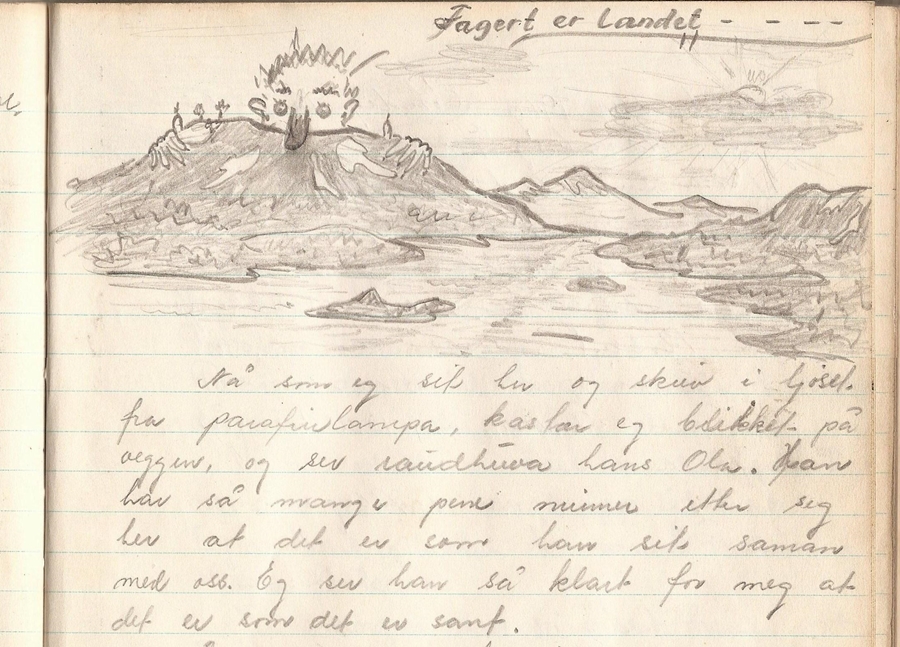 Fagert er landet - - - --
Nå som eg sit her og skriv i ljoset
fra parafinlampa, kastar eg blikket på
veggen, og ser raudhuva hans Ola. Han
har så mange pene minner etter seg
her at det er som han sit saman
med oss. Eg ser han så klart for meg at
det er som det er sant.